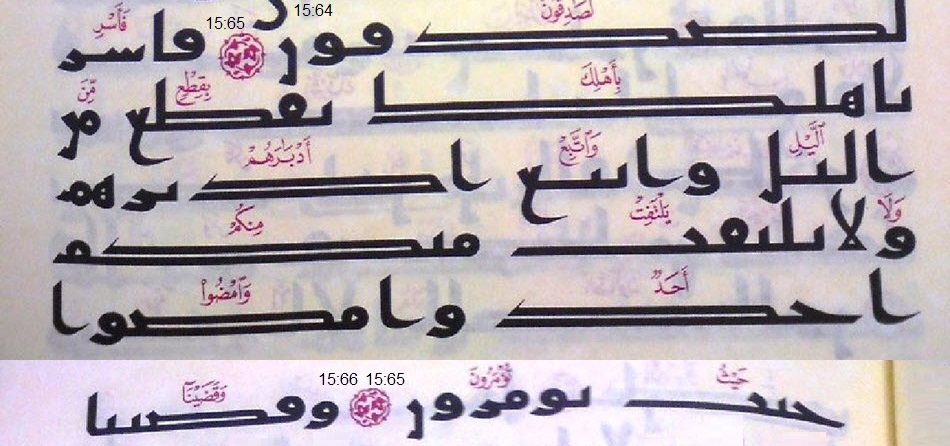 15:64 15:65
لَصَٰدِقُونَ فَأَسْرِ
لصدقون فاسر
بِأَهْلِكَ بِقِطْعٍ مِّنَ
باهلك بقطع من
ٱلَّيْلِ وَٱتَّبِعْ أَدْبَٰرَهُمْ
اليل واتبع ادبرهم
وَلَا يَلْتَفِتْ مِنكُمْ
ولا يلتفت منكم
أَحَدٌ وَٱمْضُوا۟
احد وامضوا
15:65 15:66
حَيْثُ تُؤْمَرُونَ وَقَضَيْنَآ
حيث تومرون وقضينا